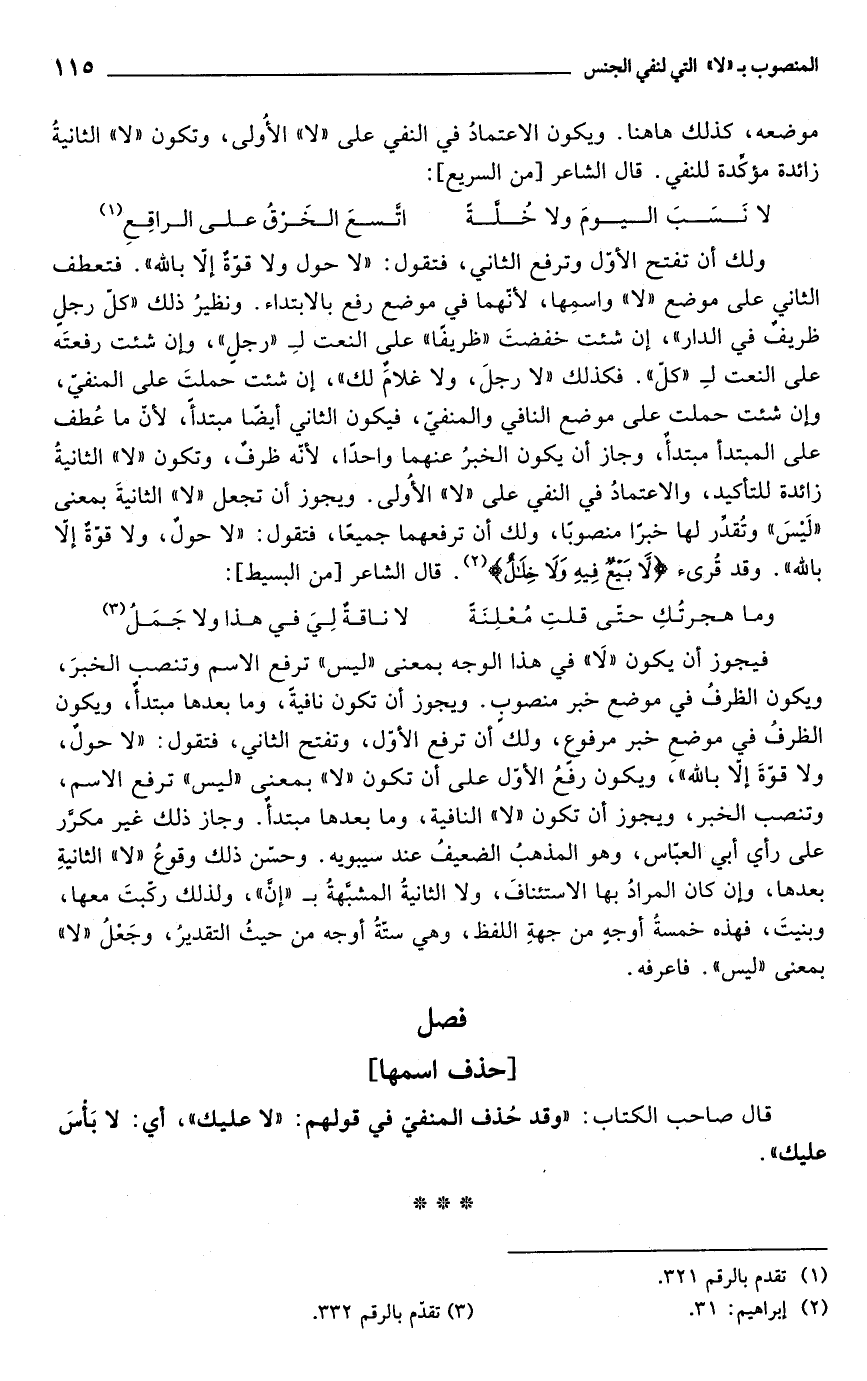 المنصوب بـ «لا» التي لنفي الجنس ١١٥
موضعه، كذلك هاهنا. ويكون الاعتمادُ في النفي على «لا» الأُولى، وتكون «لا» الثانيةُ
زائدة مؤكِّدة للنفي. قال الشاعر [من السريع]:
لا نَسَبَ اليومَ ولا خُلَّةً اتَّسعَ الخَرْقُ على الراقِعِ(١)
ولك أن تفتح الأوّل وترفع الثاني، فتقول: «لا حول ولا قوّةٌ إلّا بالله». فتعطف
الثاني على موضع «لا» واسمِها، لأنّهما في موضع رفع بالابتداء. ونظيرُ ذلك «كلّ رجلٍ
ظريفٌ في الدار»، إن شئت خفضتَ «ظريفًا» على النعت لـِ «رجلٍ»، وإن شئت رفعتَه
على النعت لـِ «كلّ». فكذلك «لا رجلَ، ولا غلامٌ لك»، إن شئت حملتَ على المنفيّ،
وإن شئت حملت على موضع النافي والمنفيّ، فيكون الثاني أيضًا مبتدأً، لأنّ ما عُطف
على المبتدأ مبتدأٌ، وجاز أن يكون الخبرُ عنهما واحدًا، لأنّه ظرفٌ، وتكون «لا» الثانيةُ
زائدة للتأكيد، والاعتمادُ في النفي على «لا» الأُولى. ويجوز أن تجعل «لا» الثانيةَ بمعنى
«لَيْسَ» وتُقدِّر لها خبرًا منصوبًا، ولك أن ترفعهما جميعًا، فتقول: «لا حولٌ، ولا قوّةٌ إلّا
بالله». وقد قُرىء ﴿لَّا بَيْعٌ فِيهِ وَلَا خِلَٰلٌ﴾(٢). قال الشاعر [من البسيط]:
وما هجرتُكِ حتّى قلتِ مُعْلِنَةً لا ناقةٌ لِيَ في هذا ولا جَمَلُ(٣)
فيجوز أن يكون «لَا» في هذا الوجه بمعنى «ليس» ترفع الاسم وتنصب الخبرَ،
ويكون الظرفُ في موضع خبر منصوبٍ. ويجوز أن تكون نافيةً، وما بعدها مبتدأٌ، ويكون
الظرفُ في موضعِ خبر مرفوع، ولك أن ترفع الأوّل، وتفتح الثاني، فتقول: «لا حولٌ،
ولا قوّةَ إلّا بالله»، ويكون رفْعُ الأوّل على أن تكون «لا» بمعنى «ليس» ترفع الاسم،
وتنصب الخبر، ويجوز أن تكون «لا» النافية، وما بعدها مبتدأٌ. وجاز ذلك غير مكرَّر
على رأي أبي العبّاس، وهو المذهبُ الضعيفُ عند سيبويه. وحسّن ذلك وقوعُ «لا» الثانيةِ
بعدها، وإن كان المرادُ بها الاستئنافَ، ولا الثانيةُ المشبَّهةُ بـ «إنَّ»، ولذلك ركّبتَ معها،
وبنيتَ، فهذه خمسةُ أوجهٍ من جهةِ اللفظ، وهي ستّةُ أوجه من حيثُ التقديرُ، وجَعْلُ «لا»
بمعنى «ليس». فاعرفه.
فصل
[حذف اسمها]
قال صاحب الكتاب: «وقد حُذف المنفيّ في قولهم: «لا عليك»، أي: لا بَأْسَ
عليك».
* * *
(١) تقدم بالرقم ٣٢١.
(٢) إبراهيم: ٣١. (٣) تقدّم بالرقم ٣٣٢.